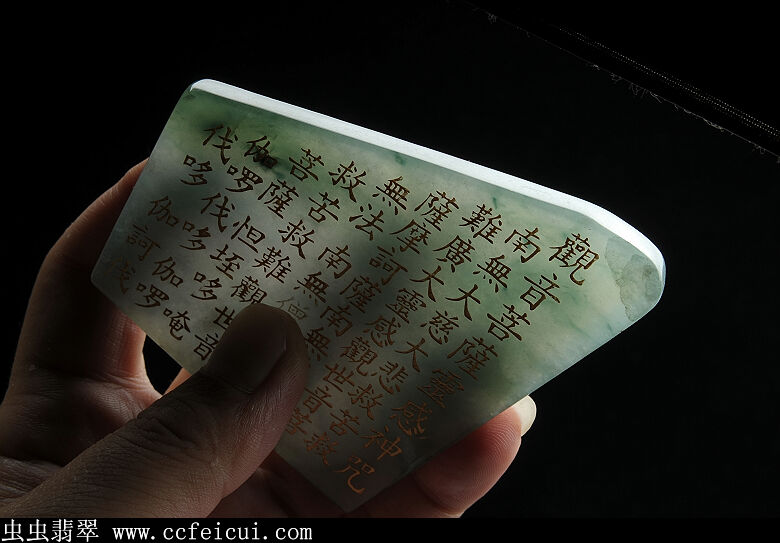 觀音菩薩靈感神咒
南無大慈大悲救苦救
難廣大靈感觀世音菩
薩摩訶薩南無
無法南無僧
救苦救難觀世音
菩薩怛垤哆唵
伽囉伐哆伽囉
伐哆伽訶伐
虫虫翡翠 www.ccfeicui.com